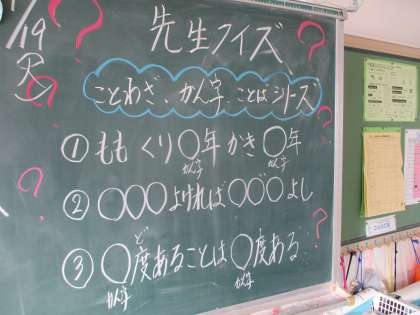 /19
先生クイズ
ことわざ、かん字、ことばシリーズ
①ももくり○年かき○年
かん字 かん字
②○○○よければ○○゛○よし
ど
③○度あることは○度ある
かん字 かん字